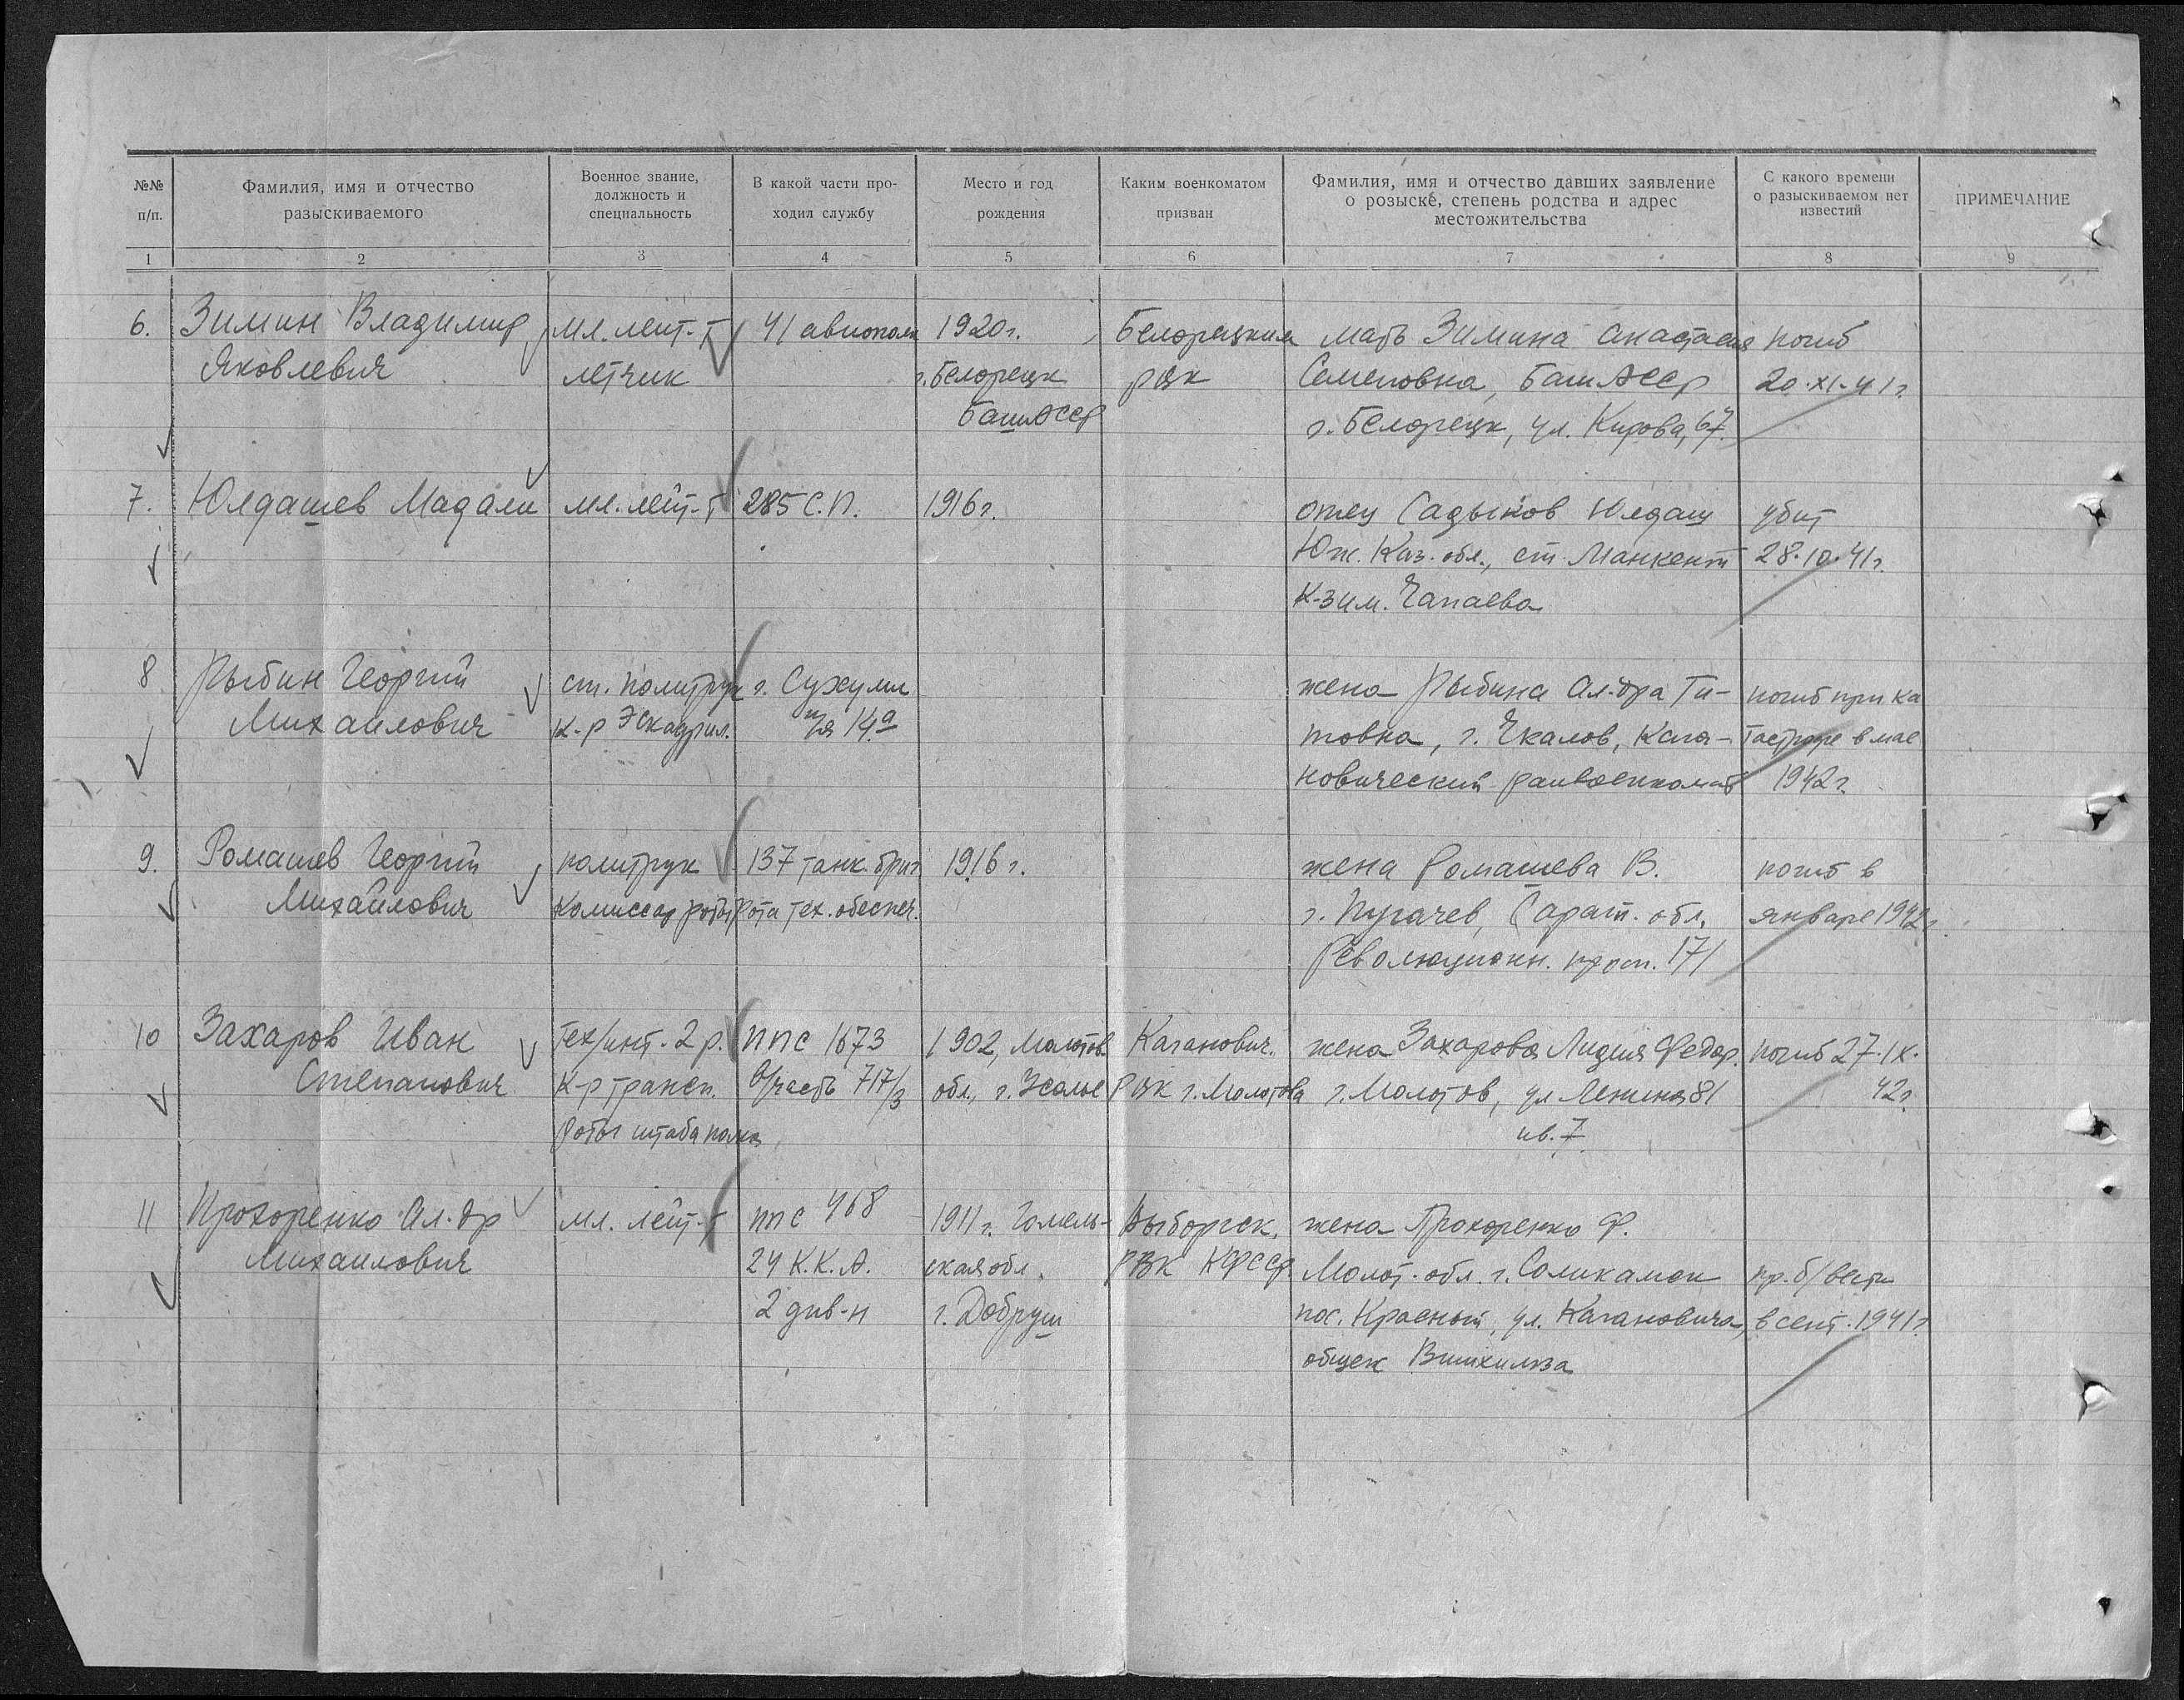 №№ п/п.
Фамилия, имя и отчество разыскиваемого
Военное звание, должность и специальность
В какой части проходил службу
Место и год рождения
Каким военкоматом призван
Фамилия, имя и отчество давших заявление о розыске, степень родства и адрес местожительства
С какого времени о разыскиваемом нет известий
ПРИМЕЧАНИЕ
1 2 3 4 5 6 7 8 9
6. Зимин Владимир мл. лейт-т 41 авиополк 1920г. Белорецким мать Зимина Анастасия погиб
Яковлевич летчик г. Белорецк РВК Семеновна, БашАССР 20.XI.41г.
БашАССР г. Белорецк, ул. Кирова, 67.
7. Юлдашев Мадали мл. лейт-т 285 С.П. 1916г. отец Садыков Юлдаш убит
Юж. Каз. обл., ст. Манкент 28.10.41г.
к-з им. Чапаева
8 Рыбин Георгий ст. политрук г. Сухуми жена Рыбина Ал-дра Ти- погиб при ка
Михайлович к-р Эскадрил. п/я 14а товна, г. Чкалов, Кага- тастрофе в мае
новический райвоенкомат 1942г.
9. Ромашев Георгий политрук 137 танк. бриг 1916г. жена Ромашева В. погиб в
Михайлович Комиссар роты Рота тех. обеспеч. г. Пугачев, Сарат. обл. январе 1942г.
Революционн. просп. 171
10 Захаров Иван Тех/инт. 2 р. ППС 1673 1902, Молотов. Каганович. жена Захарова Лидия Федор. погиб 27.IX.
Степанович к-р трансп. В/часть 717/3 обл., г. Усолье РВК г. Молотова г. Молотов, ул Ленина 81 42г.
роты штаба полка кв. 7
11 Прохоренко Ал-др мл. лейт-т ппс 468 1911г. Гомель- Выборгск. жена Прохоренко Ф.
Михайлович 24 К.К.А. ская обл. РВК КФССР Молот. обл. г. Соликамск пр. б/вести
2 див-н г. Добруш пос. Красный, ул. Кагановича, в сент. 1941г.
общеж